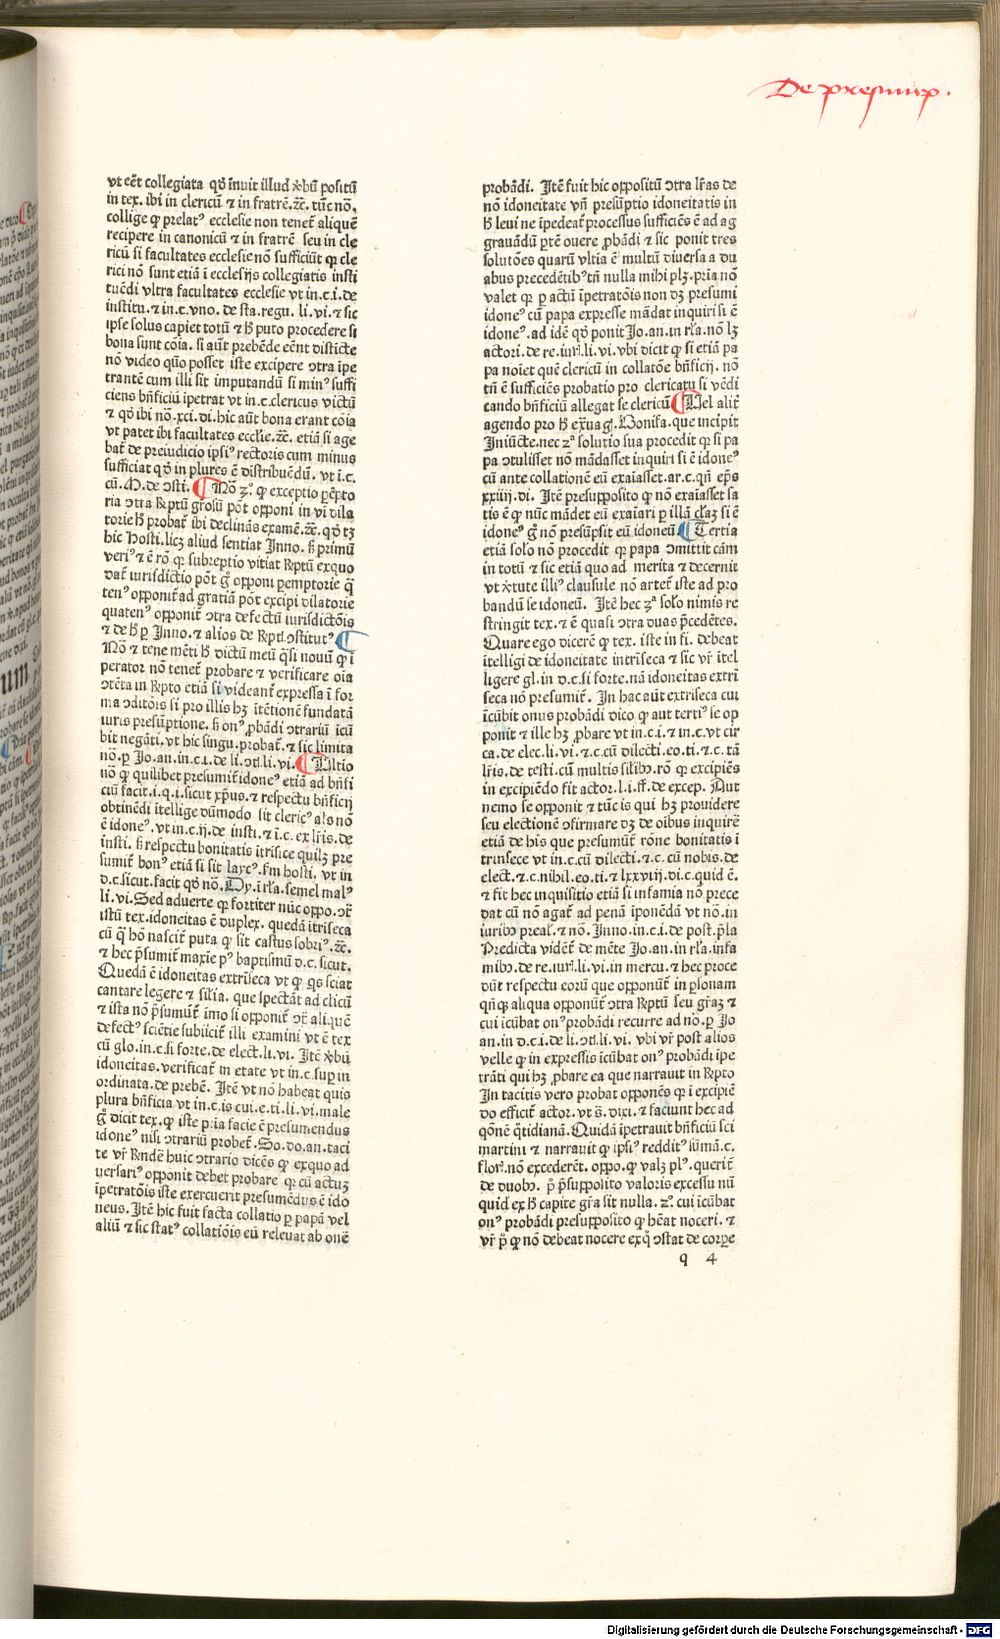 De presump.
vt eēt collegiata qď īnuit illud ꝟbū positū
in tex. ibi in clericū ⁊ in fratrē.⁊c̄. tūc nō.
collige ꝙ prelatꝰ ecclesie non tenet̄ aliquē
recipere in canonicū ⁊ in fratrē seu in cle
ricū si facultates ecclesie nō sufficiūt ꝙ cle
rici nō sunt etiā ī ecclesijs collegiatis insti
tuēdi vltra facultates ecclesie vt in.c.i.de
institu.⁊ in.c.vno. de sta.regu. li.vi.⁊ sic
ipse solus capiet totū ⁊ ħ puto procedere si
bona sunt cōia. si aūt prebēde eēnt disticte
nō video quō posset iste excipere ↄtra īpe
trantē cum illi sit imputandū si minꝰ suffi
ciens bn̄ficiū īpetrat vt in.c.clericus victū
⁊ qď ibi nō.xci.di.hic aūt bona erant cōia
vt patet ibi facultates ecclie.⁊c̄. etiā si age
bat̄ de preiudicio ipsiꝰ rectoris cum minus
sufficiat qď in plures ē distribuēdū. vt ī.c.
cū.M.de ↄsti. Nō ꝫº. ꝙ exceptio ꝑēpto
ria ↄtra Rp̄tū grosū pōt opponi in vī dila
torie ħ probat̄ ibi declinās examē.⁊c̄.qď tꝫ
hic Hosti.licꝫ aliud sentiat Inno. s̄ primū
veriꝰ ⁊ ē rō ꝙ subreptio vitiat Rp̄tū exquo
dat̄ iurisdictio pōt g̊ opponi ꝑemptorie q̄
tenꝰ opponit̄ ad gratiā pōt excipi dilatorie
quatenꝰ opponit̄ ↄtra defectū iurisdictōis
⁊ de ħ ꝑ Inno.⁊ alios de Rp̄ti.ↄstitutꝰ
Nō ⁊ tene mēti ħ dictū meū q̄si nouū ꝙ ī
perator nō tenet̄ probare ⁊ verificare oīa
ↄtēta in Rp̄to etiā si videant̄ expressa ī for
ma ↄditōis si pro illis hꝫ ītētionē fundatā
iuris presūptione. s̄ onꝰ ꝓbādi ↄtrariū īcū
bit negāti.vt hic singu. probat̄.⁊ sic limita
nō.ꝑ Jo.an.in.c.i.de li.ↄtl.li.vi. Ultio
nō ꝙ quilibet presumit̄ idoneꝰ etiā ad bn̄fi
ciū facit.i.q.i.sicut xp̄us.⁊ respectu bn̄ficij
obtinēdi ītellige dūmodo sit clericꝰ als nō
ē idoneꝰ.vt in.c.ij.de insti.⁊ ī.c. ex lr̄is.de
insti. s̄ respectu bonitatis ītrīsice quilꝫ pre
sumit̄ bonꝰ etiā si sit laycꝰ.fm hosti. vt in
d.c.sicut.facit qď nō. Dy.ī rl̄a.semel malꝰ
li.vi.Sed aduerte ꝙ fortiter nūc oppo.ↄt̄
istū tex.idoneitas ē duplex. quedā ītrīseca
cū q̄ hō nascit̄ puta ꝙ sit castus sobriꝰ.⁊c̄.
⁊ hec p̄sumit̄ maxīe pꝰ baptismū d.c.sicut.
Quedā ē idoneitas extrīseca vt ꝙ qs sciat
cantare legere ⁊ silia. que spectāt ad clicū
⁊ ista nō p̄sumūt̄ imo si opponit̄ ↄt̄ aliquē
defectꝰ sciētie subijcit̄ illi examini vt ē tex
cū glo.in.c.si forte.de elect̄.li.vi. Itē ꝟbū
idoneitas.verificat̄ in etate vt in.c.suꝑ in
ordinata.de prebē. Itē vt nō habeat quis
plura bn̄ficia vt in.c.is cui.e.ti.li.vi.male
g̊ dicit tex.ꝙ iste pria facie ē presumendus
idoneꝰ nisi ↄtrariū probet̄.So.do.an.taci
te vr̄ Rn̄dē huic ↄtrario dicēs ꝙ exquo ad
uersariꝰ opponit debet probare ꝙ cū actuꝫ
īpetratōis iste exercuerit presumēdꝰ ē ido
neus.Itē hic fuit facta collatio ꝑ papā vel
aliū ⁊ sic statꝰ collatiōis eū releuat ab onē
probādi. Itē fuit hic oppositū ↄtra lr̄as de
nō idoneitate vn̄ presūptio idoneitatis in
ħ leui ne īpedeat̄ processus sufficiēs ē ad ag
grauādū ꝑtē ouere ꝓbādi ⁊ sic ponit tres
solutōes quarū vltīa ē multū diuersa a du
abus precedētibꝰ tn̄ nulla mihi plꝫ.pria nō
valet qꝛ ꝑ actū īpetratōis non dꝫ presumi
idoneꝰ cū papa expresse mādat inquiri si ē
idoneꝰ.ad idē qď ponit Jo.an.in rl̄a.nō lꝫ
actori.de re.iur̄.li.vi.vbi dicit ꝙ si etiā pa
pa noīet quē clericū in collatōe bn̄ficij. nō
tn̄ ē sufficiēs probatio pro clericatu si vēdi
cando bn̄ficiū allegat se clericū Uel alit̄
agendo pro ħ exuag̊. Bonifa.que incipit
Iniūcte.nec ꝫª solutio sua procedit ꝙ si pa
pa ↄtulisset nō mādasset inquiri si ē idoneꝰ
cū ante collationē eū exaīasset.ar.c.qn̄ ep̄s
xxiiij.di. Itē presupposito ꝙ nō exaīasset sa
tis ē ꝙ nūc mādet eū exaīari ꝑ illā claꝫ si ē
idoneꝰ g̊ nō presūpsit eū idoneū. Tertia
etiā solo nō procedit qꝛ papa ↄmittit cām
in totū ⁊ sic etiā quo ad merita ⁊ decernit
vt ꝟtute illiꝰ clausule nō artet̄ iste ad pro
bandū se idoneū. Itē hec ꝫª solo nimis re
stringit tex.⁊ ē quasi ↄtra duas p̄cedētes.
Quare ego dicerē ꝙ tex. iste in fi. debeat
ītelligi de idoneitate intrīseca ⁊ sic vr̄ ītel
ligere gl.in d.c.si forte.nā idoneitas extrī
seca nō presumit̄. In hac aūt extrīseca cui
īcūbit onus probādi dico ꝙ aut tertiꝰ se op
ponit ⁊ ille hꝫ ꝓbare vt in.c.i.⁊ in.c.vt cir
ca.de elec.li.vi.⁊.c.cū dilecti.eo.ti.⁊.c.tā
lr̄is.de testi.cū multis silibꝫ.rō ꝙ excipiēs
in excipiēdo fit actor.l.i.ff.de excep. Aut
nemo se opponit ⁊ tūc is qui hꝫ prouidere
seu electionē ↄfirmare dꝫ de oībus inquirē
etiā de his que presumūt̄ rōne bonitatis ī
trinsece vt in.c.cū dilecti.⁊.c. cū nobis.de
elect̄.⁊.c.nihil.eo.ti.⁊ lxxviij.di.c.quid ē.
⁊ fit hec inquisitio etiā si infamia nō prece
dat cū nō agat̄ ad penā īponēdā vt nō.in
iuribꝫ preal̄.⁊ nō. Inno.in.c.i.de post.p̄la
Predicta vidēt̄ de mēte Jo.an.in rl̄a.infa
mibꝫ.de re.iur̄.li.vi.in mercu.⁊ hec proce
dūt respectu eorū que opponūt̄ in ꝑsonam
qn̄ꝙ aliqua opponūt̄ ↄtra Rp̄tū seu gr̄aꝫ ⁊
cui īcūbat onꝰ probādi recurre ad nō.ꝑ Jo
an.in d.c.i.de li.ↄtl.li.vi. vbi vr̄ post alios
velle ꝙ in expressis īcūbat onꝰ probādi īpe
trāti qui hꝫ ꝓbare ea que narrauit in Rp̄to
In tacitis vero probat opponēs qꝛ ī excipiē
do efficit̄ actor.vt s̄. dixi.⁊ faciunt hec ad
qōnē q̄tidianā.Quidā īpetrauit bn̄ficiū sci
martini ⁊ narrauit ꝙ ipsiꝰ redditꝰ sūmā.c.
flor̄.nō excederēt. oppo.ꝙ valꝫ plꝰ.querit̄
de duobꝫ. p̄ p̄supposito valoris excessu nū
quid ex ħ capite gr̄a sit nulla. ꝫº.cui īcūbat
onꝰ probādi presupposito ꝙ hēat noceri.⁊
vr̄ p̄ ꝙ nō debeat nocere exq̊ ↄstat de corꝑe
q 4
Digitalisierung gefördert durch die Deutsche Forschungsgemeinschaft - DFG